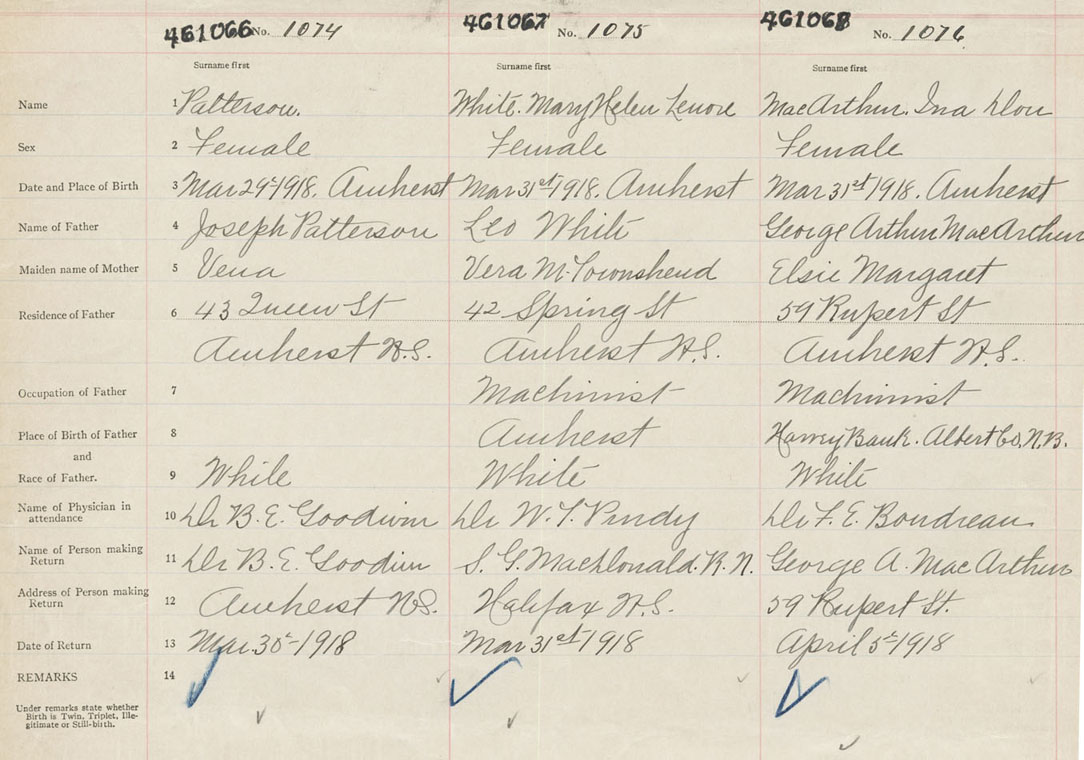 461066 No. 1074 461067 No. 1075 461068 No. 1076
Surname first Surname first Surname first
Name 1 Patterson. White. Mary Helen Lenore MacArthur. Ina
Sex 2 Female Female Female
Date and Place of Birth 3 Mar 29th 1918. Amherst Mar 31st 1918. Amherst Mar 31st 1918. Amherst
Name of Father 4 Joseph Patterson Leo White George Arthur MacArthur
Maiden name of Mother 5 Vena Vera M. Townshend Elsie Margaret
Residence of Father 6 43 Queen St 42 Spring St 59 Rupert St
Amherst N.S. Amherst N.S. Amherst N.S.
Occupation of Father 7 Machinist Machinist
Place of Birth of Father 8 Amherst Harvey Bank. Albert Co. N.B.
and
Race of Father. 9 White White White
Name of Physician in
attendance 10 Dr B. E. Goodwin Dr W. T. Purdy Dr F. E. Boudreau
Name of Person making
Return 11 Dr B. E. Goodwin S. G. MacDonald. R.N. George A. MacArthur
Address of Person making
Return 12 Amherst N.S. Halifax N.S. 59 Rupert St.
Date of Return 13 Mar 30th 1918 Mar 31st 1918 April 5th 1918
REMARKS 14
Under remarks state whether
Birth is Twin, Triplet, Ille-
gitimate or Still-birth.